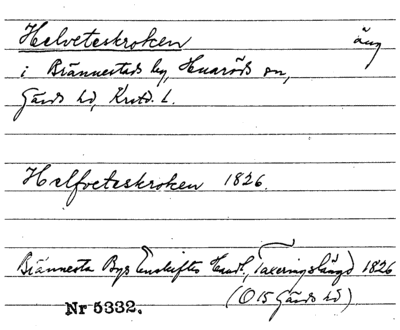 Helveteskroken äng
i Brännestads by, Huaröds sn,
Gärds hd, Krstd. L.
Helfveteskroken 1826.
Brännesta Bys Enskiftes Handl., Taxeringslängd 1826
(O 15 Gärds hd)
Nr 5332.